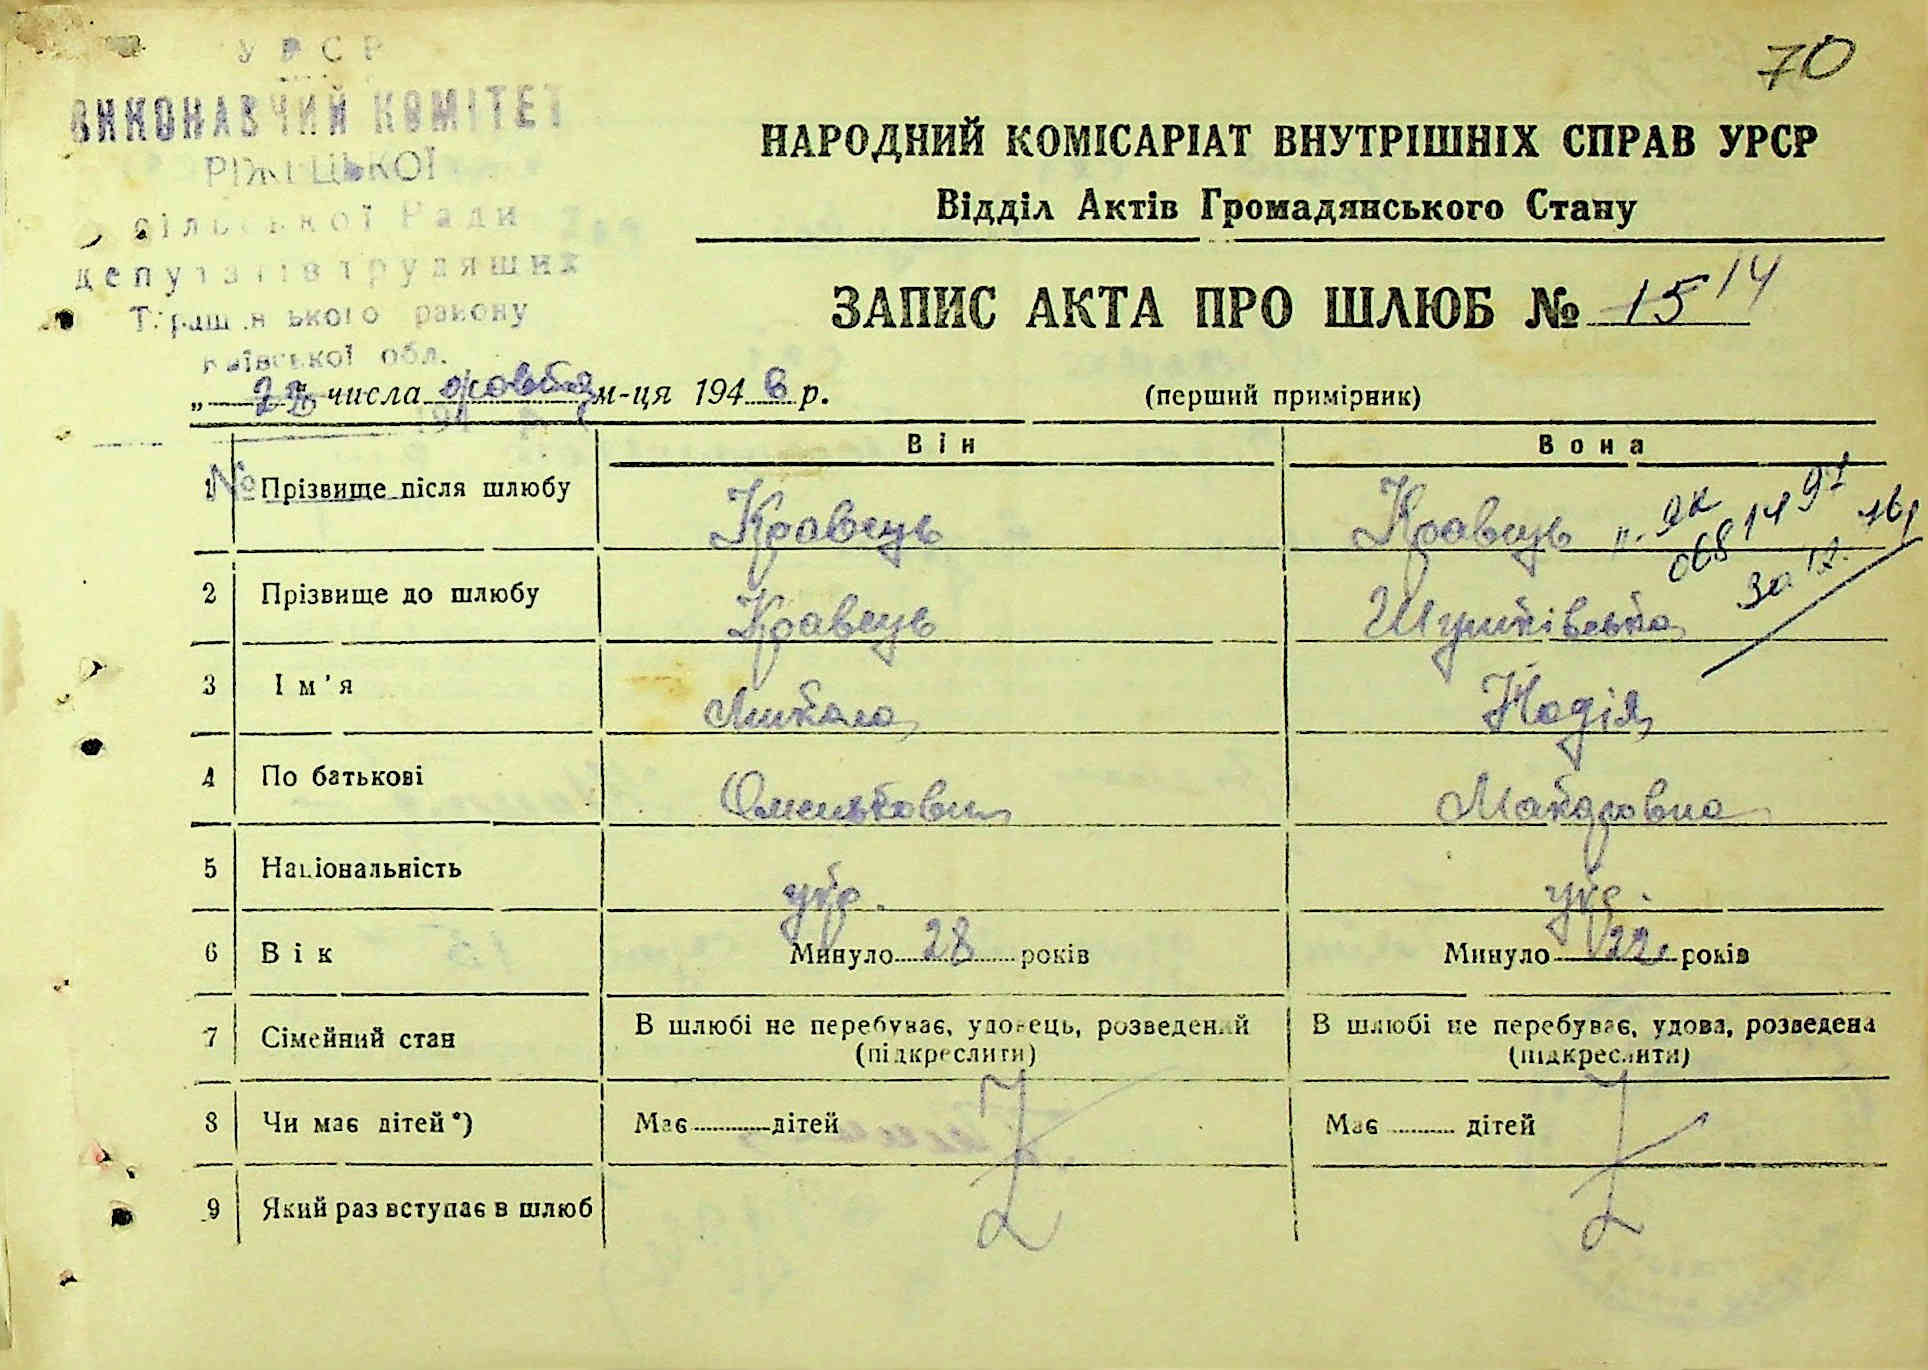 70
УРСР
ВИКОНАВЧИЙ КОМІТЕТ
сільської Ради
депутатів трудящих
Таращанського району
Київської обл.
НАРОДНИЙ КОМІСАРІАТ ВНУТРІШНІХ СПРАВ УРСР
Відділ Актів Громадянського Стану
ЗАПИС АКТА ПРО ШЛЮБ № 15 14
числа жовтня м-ця 1946 р.
(перший примірник)
Він Вона
№
1 Прізвище після шлюбу Кравець Кравець
2 Прізвище до шлюбу Кравець
3 Ім'я Микола Надія
4 По батькові Омелькович Макаровна
5 Національність укр. укр.
6 Вік Минуло 28 років Минуло 22 років
7 Сімейний стан В шлюбі не перебуває, удовець, розведений (підкреслити) В шлюбі не перебуває, удова, розведена (підкреслити)
8 Чи має дітей*) Має дітей Має дітей
9 Який раз вступає в шлюб